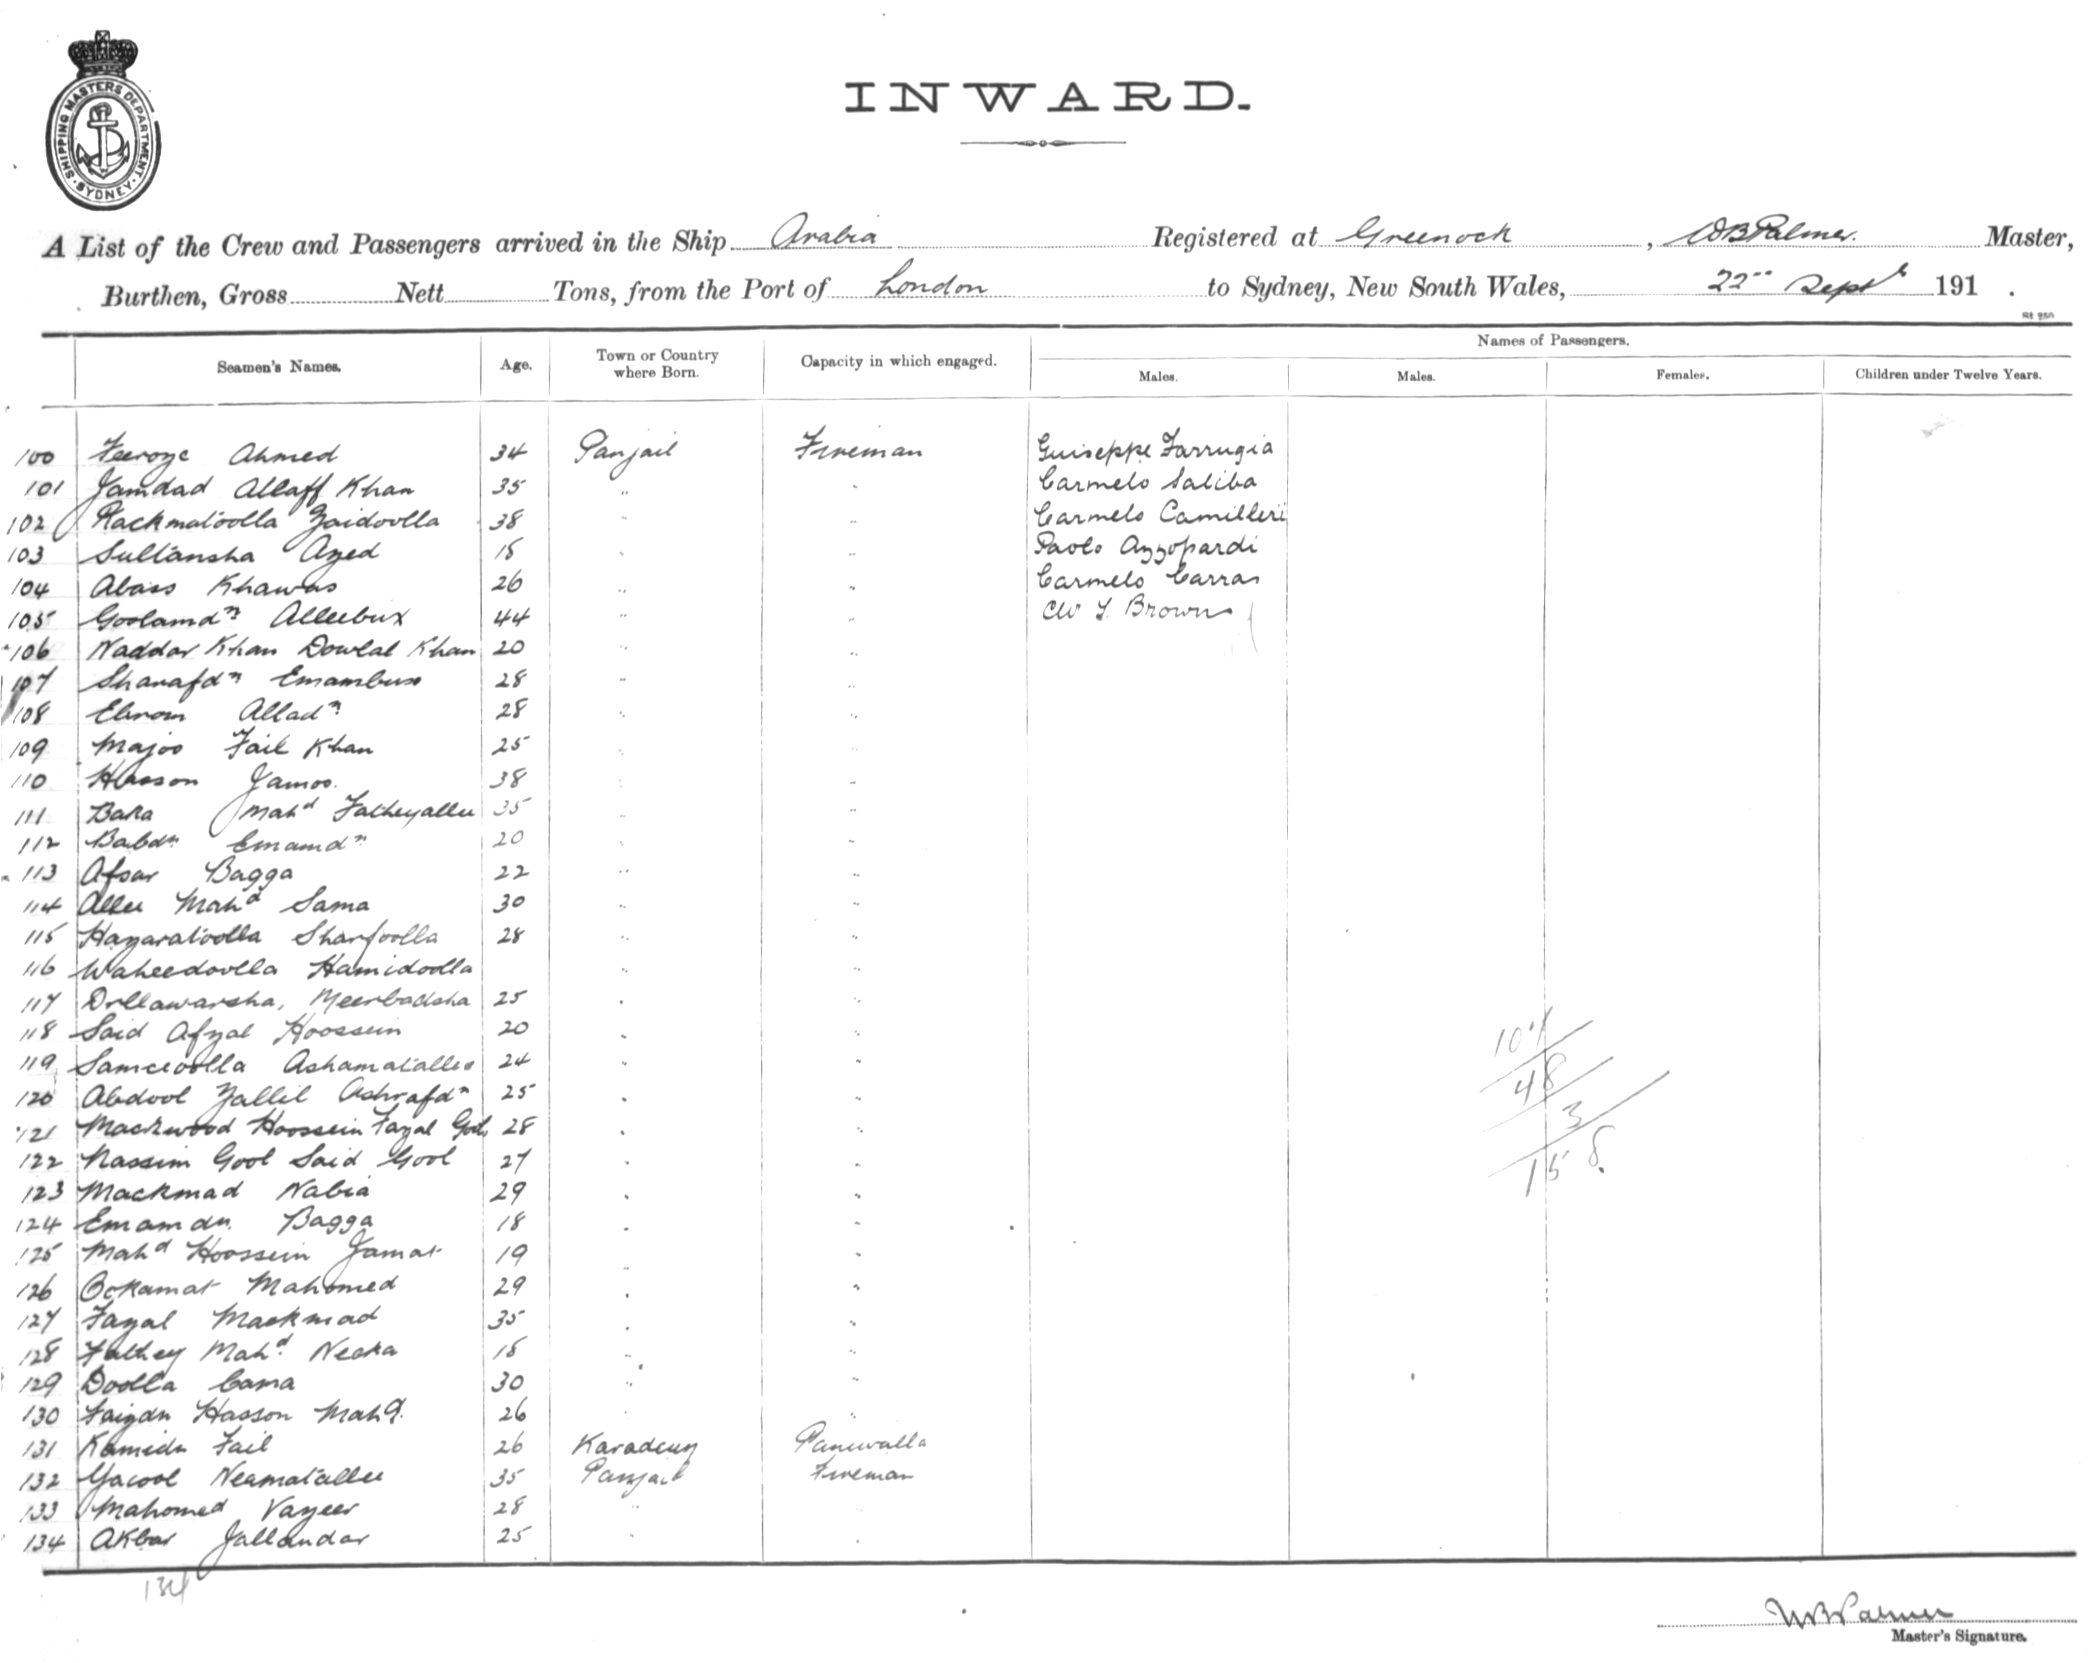 SHIPPING MASTERS DEPARTMENT. SYDNEY.
INWARD.
A List of the Crew and Passengers arrived in the Ship Arabia Registered at Greenock, WB Palmer. Master,
Burthen, Gross Nett Tons, from the Port of London to Sydney, New South Wales, 22nd Sept 191 .
St 250
Names of Passengers.
Seamen's Names. Age. Town or Country where Born. Capacity in which engaged. Males. Males. Females. Children under Twelve Years.
100 Feeroze Ahmed 34 Panjail Fireman Guiseppe Farrugia
101 Jamdad Allaff Khan 35 " " Carmelo Saliba
102 Rackmatoolla Zaidoolla 38 " " Carmelo Camilleri
103 Sultansha Azed 18 " " Paolo Azzopardi
104 Abass Khawas 26 " " Carmelo Carras
105 Goolamdn Alleebux 44 " " Brown
106 Naddar Khan Dowlat Khan 20 " "
107 Sharafdn Emambux 28 " "
108 Ebrom Alladn 28 " "
109 Majoo Fail Khan 25 " "
110 Hasson Jamoo. 38 " "
111 Baka Mahd Fatheyallee 35 " "
112 Babdn Emamdn 20 " "
113 Afsar Bagga 22 " "
114 Allee Mahd Sama 30 " "
115 Hazaratoolla Sharfoolla 28 " "
116 Waheedoolla Hamidoolla " "
117 Dellawarsha, Meerbadsha 25 " "
118 Said Afzal Hoossein 20 " "
119 Sameeoolla Ashamatallee 24 " "
120 Abdool Zallil Ashrafdn 25 " "
121 Mackwood Hoossein Fazal Gool 28 " "
122 Nassim Gool Said Gool 27 " "
123 Mackmad Nabia 29 " "
124 Emamdn Bagga 18 " "
125 Mahd Hoossein Jamat 19 " "
126 Ockamat Mahomed 29 " "
127 Fazal Mackmad 35 " "
128 Fathey Mahd. Necka 18 " "
129 Doolla Cama 30 " "
130 Faizdn Hasson Mahd. 26 " "
131 Kamidn Fail 26 Karadeuy Paniwalla
132 Yacool Neamatallee 35 Panjail Fireman
133 Mahomed Vazeer 28 " "
134 Akbar Jallandar 25 " "
107
48
3
158.
134
WB Palmer
Master's Signature.